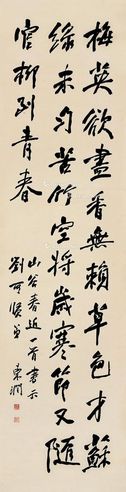 梅英欲盡香無賴草色才蘇
綠未勻苦竹空將歲寒節又隨
官柳到青春
山谷春近一首書示
劉可 弟
東潤